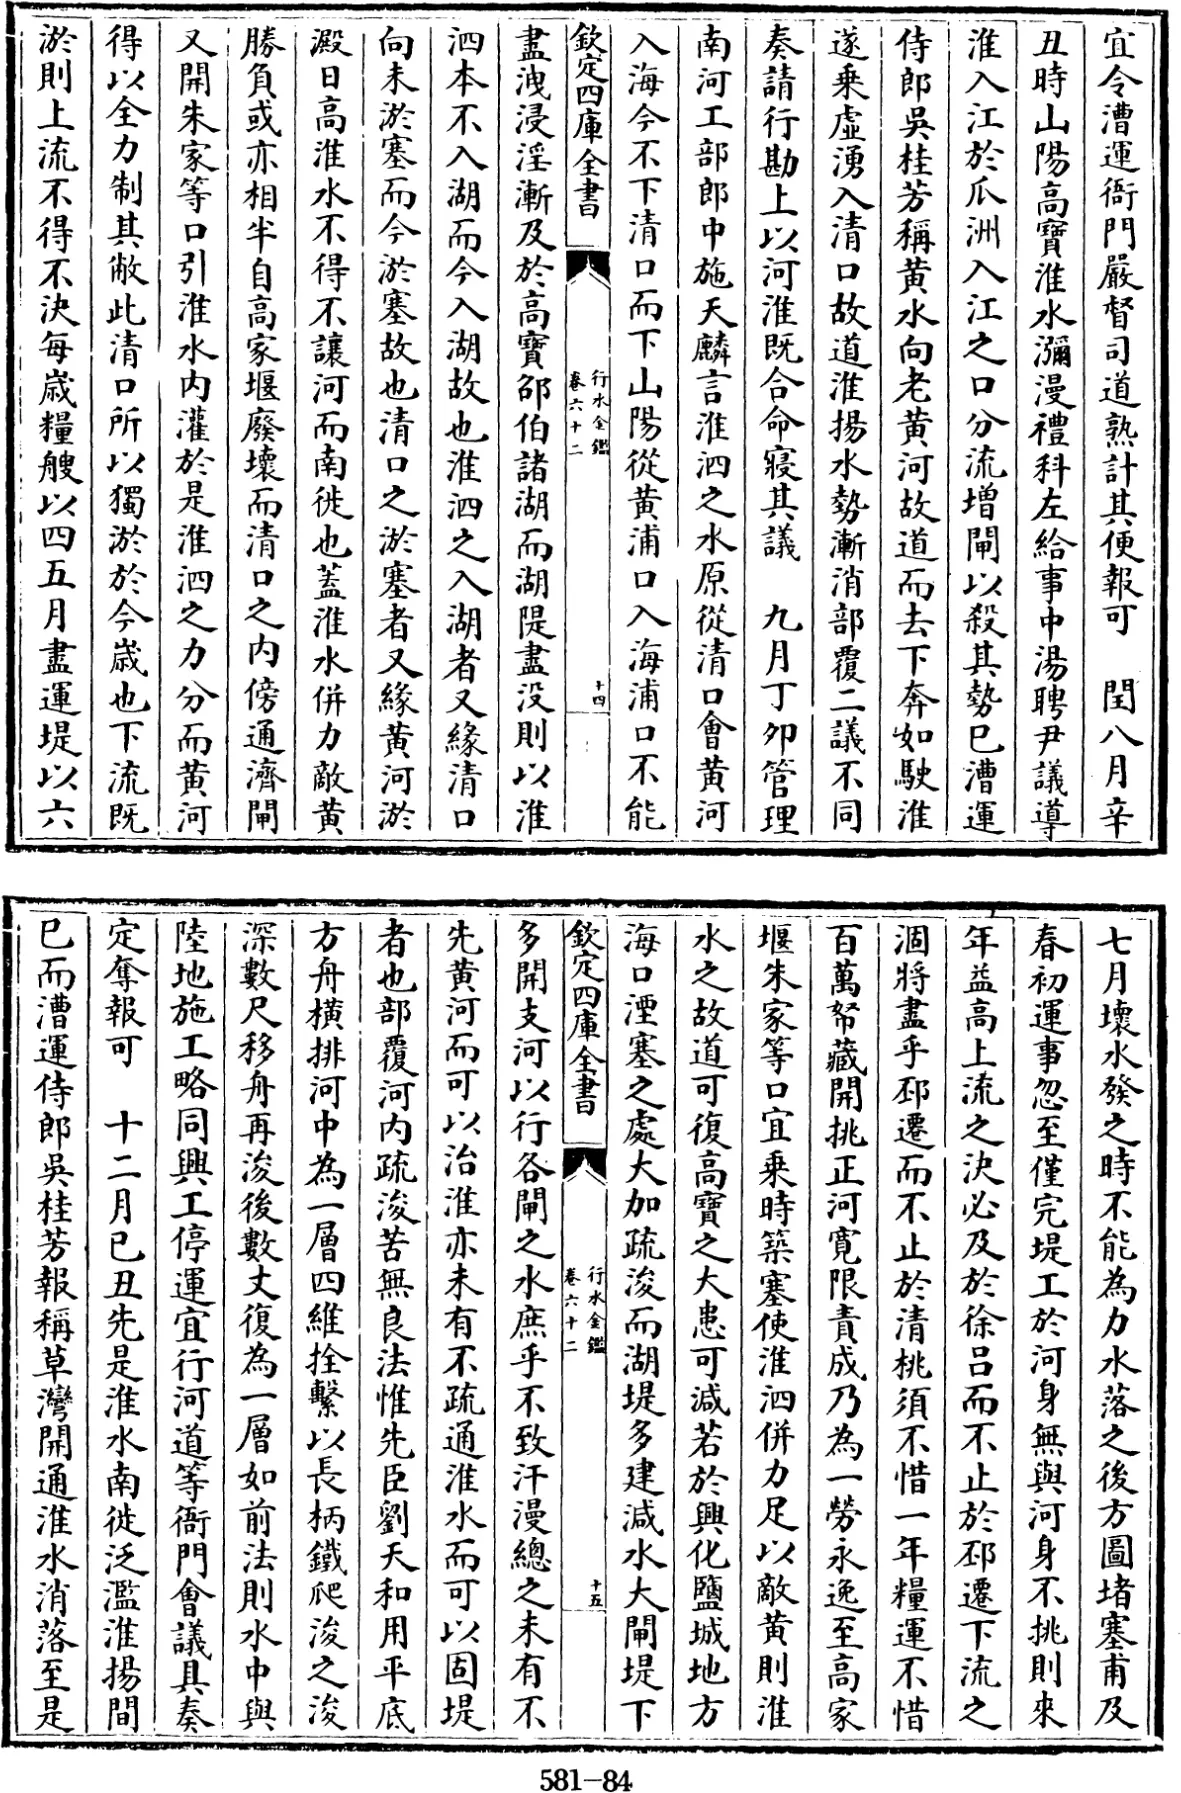 宜令漕運衙門嚴督司道熟計其便報可　閏八月辛
丑時山陽高寶淮水瀰漫禮科左給事中湯聘尹議導
淮入江於瓜洲入江之口分流增閘以殺其勢巳漕運
侍郎吳桂芳稱黄水向老黄河故道而去下奔如駛淮
遂乗虛湧入清口故道淮揚水勢漸消部覆二議不同
奏請行勘上以河淮既合命寢其議　九月丁夘管理
南河工部郎中施天麟言淮泗之水原從清口會黄河
入海今不下清口而下山陽從黄浦口入海浦口不能
欽定四庫全書
行水金鑑
卷六十二
十四
盡洩浸淫漸及於高寶邵伯諸湖而湖隄盡没則以淮
泗本不入湖而今入湖故也淮泗之入湖者又緣清口
向未淤塞而今淤塞故也清口之淤塞者又緣黄河淤
澱日高淮水不得不讓河而南徙也蓋淮水併力敵黄
勝負或亦相半自高家堰廢壞而清口之内傍通濟閘
又開朱家等口引淮水内灌於是淮泗之力分而黄河
得以全力制其敝此清口所以獨淤於今歳也下流既
淤則上流不得不決每歳糧艘以四五月盡運堤以六
七月壞水發之時不能為力水落之後方圖堵塞甫及
春初運事忽至僅完堤工於河身無與河身不挑則來
年益高上流之決必及於徐吕而不止於邳遷下流之
涸將盡乎邳遷而不止於清桃須不惜一年糧運不惜
百萬帑藏開挑正河寛限責成乃為一勞永逸至高家
堰朱家等口宜乗時築塞使淮泗併力足以敵黄則淮
水之故道可復高寶之大患可減若於興化鹽城地方
海口湮塞之處大加疏浚而湖堤多建減水大閘堤下
欽定四庫全書
行水金鑑
卷六十二
十五
多開支河以行各閘之水庶乎不致汗漫總之未有不
先黄河而可以治淮亦未有不疏通淮水而可以固堤
者也部覆河内疏浚苦無良法惟先臣劉天和用平底
方舟横排河中為一層四維拴繫以長柄鐵爬浚之浚
深數尺移舟再浚後數丈復為一層如前法則水中與
陸地施工略同興工停運宜行河道等衙門會議具奏
定奪報可　十二月已丑先是淮水南徙泛濫淮揚間
已而漕運侍郎吳桂芳報稱草灣開通淮水消落至是
581-84